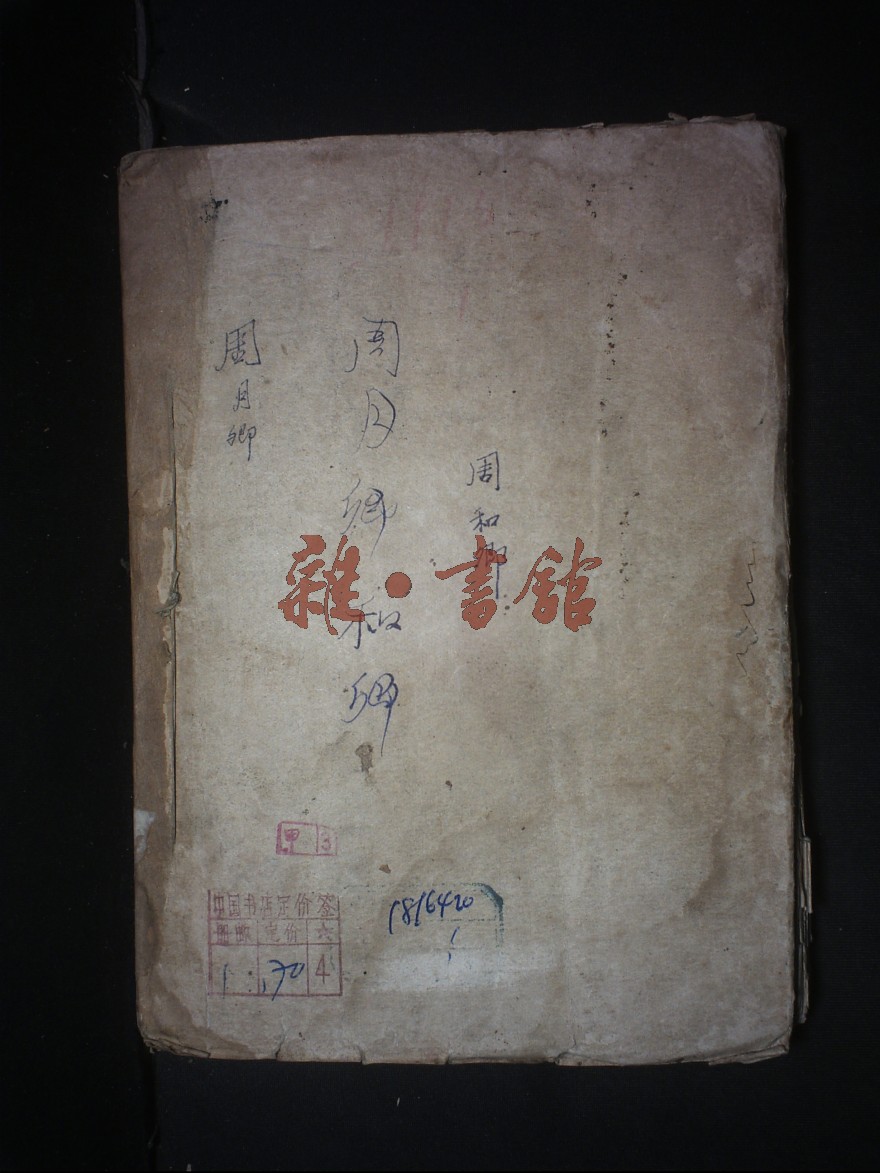 周月卿
周月卿和卿
周和卿
雜·書館
甲 3
中国书店定价签
册数 定价 六
1 .70 4
1816420
1